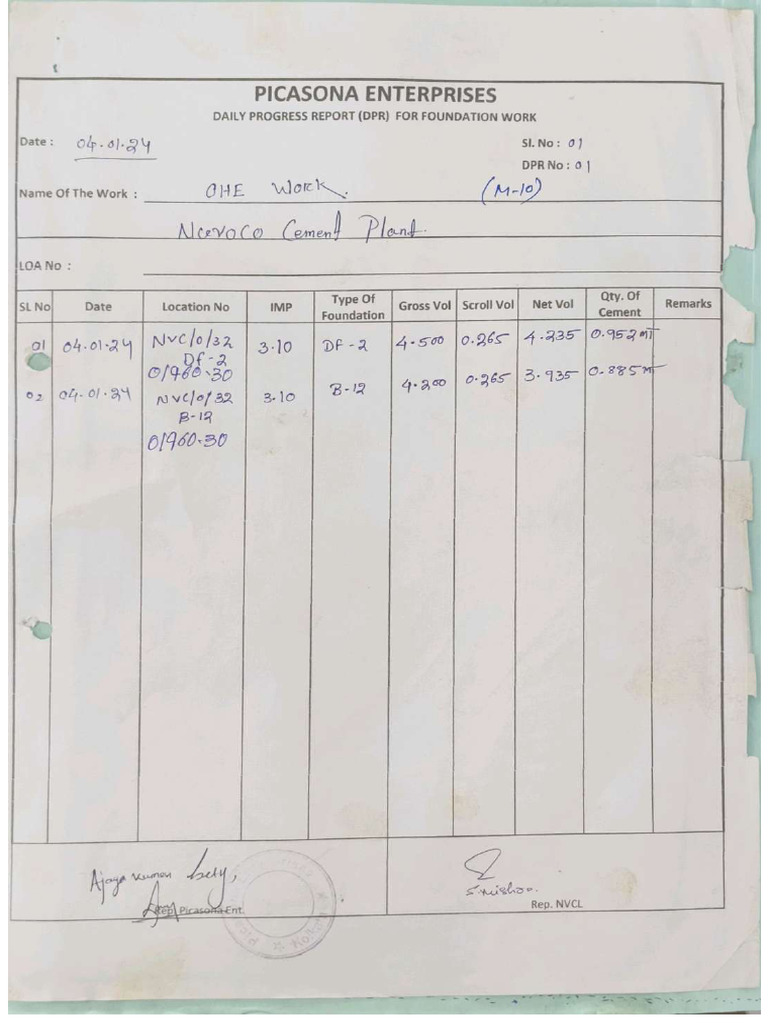 PICASONA ENTERPRISES
DAILY PROGRESS REPORT (DPR) FOR FOUNDATION WORK
Date : 04.01.24 Sl. No : 01
DPR No : 01
Name Of The Work : OHE Work. (M-10)
Cement Plant.
LOA No :
SL No Date Location No IMP Type Of Foundation Gross Vol Scroll Vol Net Vol Qty. Of Cement Remarks
01 04.01.24 NVC/0/32 3.10 DF-2 4.500 0.265 4.235 0.952 MT
DF-2
0/960.30
02 04.01.24 NVC/0/32 3.10 B-12 4.200 0.265 3.935 0.885 MT
B-12
0/960.30
Ajaya Kumar
S. Mishra.
Rep. Picasona Ent. Rep. NVCL